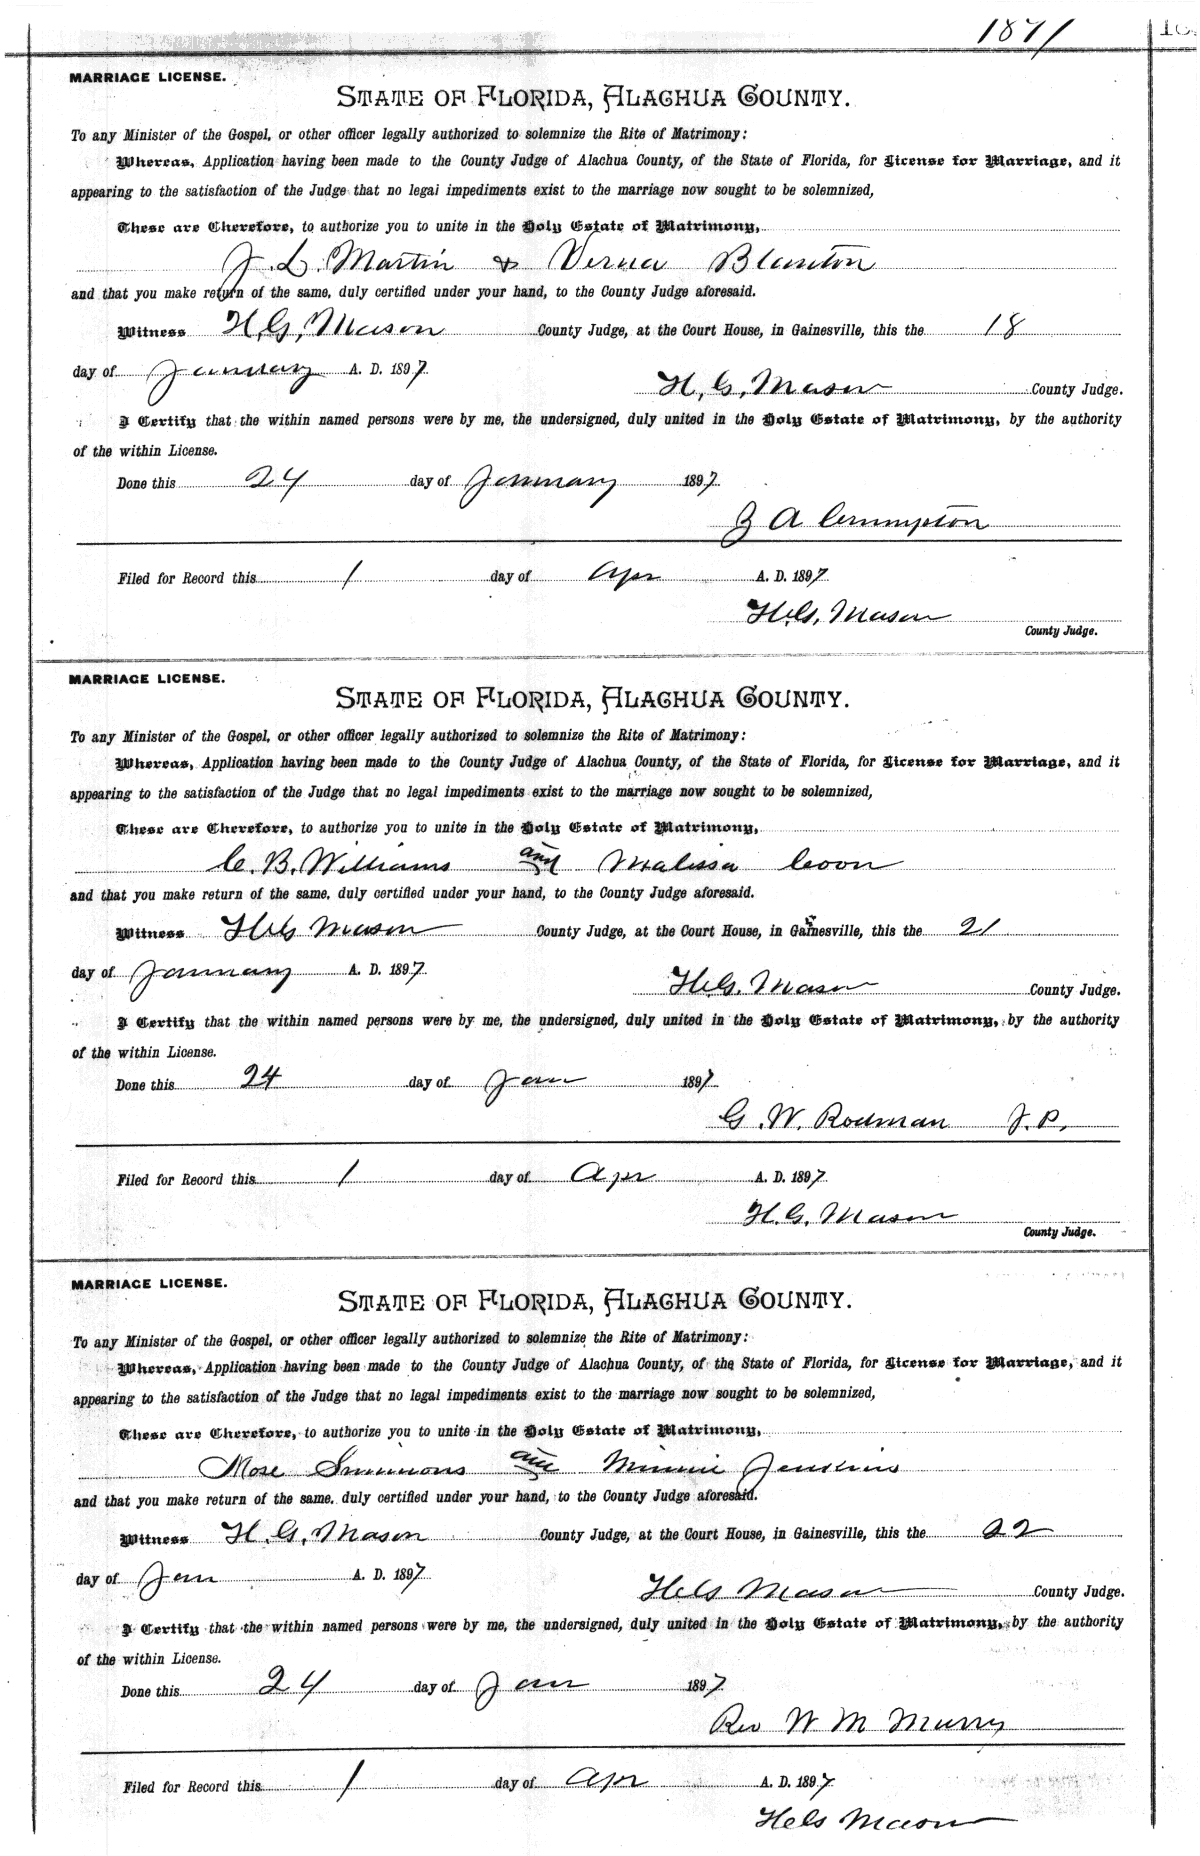 1871
MARRIAGE LICENSE.
STATE OF FLORIDA, ALACHUA COUNTY.
To any Minister of the Gospel, or other officer legally authorized to solemnize the Rite of Matrimony:
Whereas, Application having been made to the County Judge of Alachua County, of the State of Florida, for License for Marriage, and it
appearing to the satisfaction of the Judge that no legal impediments exist to the marriage now sought to be solemnized,
These are Therefore, to authorize you to unite in the Holy Estate of Matrimony,
J. L. Martin & Verna Blanton
and that you make return of the same, duly certified under your hand, to the County Judge aforesaid.
Witness H. G. Mason County Judge, at the Court House, in Gainesville, this the 18
day of January A. D. 1897
H. G. Mason County Judge.
I Certify that the within named persons were by me, the undersigned, duly united in the Holy Estate of Matrimony, by the authority
of the within License.
Done this 24 day of January 1897
A Crumpton
Filed for Record this 1 day of Apr A. D. 1897
H. G. Mason
County Judge.
MARRIAGE LICENSE.
STATE OF FLORIDA, ALACHUA COUNTY.
To any Minister of the Gospel, or other officer legally authorized to solemnize the Rite of Matrimony:
Whereas, Application having been made to the County Judge of Alachua County, of the State of Florida, for License for Marriage, and it
appearing to the satisfaction of the Judge that no legal impediments exist to the marriage now sought to be solemnized,
These are Therefore, to authorize you to unite in the Holy Estate of Matrimony,
C. B. Williams and Malissa Coon
and that you make return of the same, duly certified under your hand, to the County Judge aforesaid.
Witness H G Mason County Judge, at the Court House, in Gainesville, this the 21
day of January A. D. 1897
H. G. Mason County Judge.
I Certify that the within named persons were by me, the undersigned, duly united in the Holy Estate of Matrimony, by the authority
of the within License.
Done this 24 day of Jan 1897
G. W. Rodman J. P.
Filed for Record this 1 day of Apr A. D. 1897
H. G. Mason
County Judge.
MARRIAGE LICENSE.
STATE OF FLORIDA, ALACHUA COUNTY.
To any Minister of the Gospel, or other officer legally authorized to solemnize the Rite of Matrimony:
Whereas, Application having been made to the County Judge of Alachua County, of the State of Florida, for License for Marriage, and it
appearing to the satisfaction of the Judge that no legal impediments exist to the marriage now sought to be solemnized,
These are Therefore, to authorize you to unite in the Holy Estate of Matrimony,
Mose Simmons and Minnie Jenkins
and that you make return of the same, duly certified under your hand, to the County Judge aforesaid.
Witness H. G. Mason County Judge, at the Court House, in Gainesville, this the 22
day of Jan A. D. 1897
H G Mason County Judge.
I Certify that the within named persons were by me, the undersigned, duly united in the Holy Estate of Matrimony, by the authority
of the within License.
Done this 24 day of Jan 1897
Rev W M Murry
Filed for Record this 1 day of Apr A. D. 1897
H G Mason